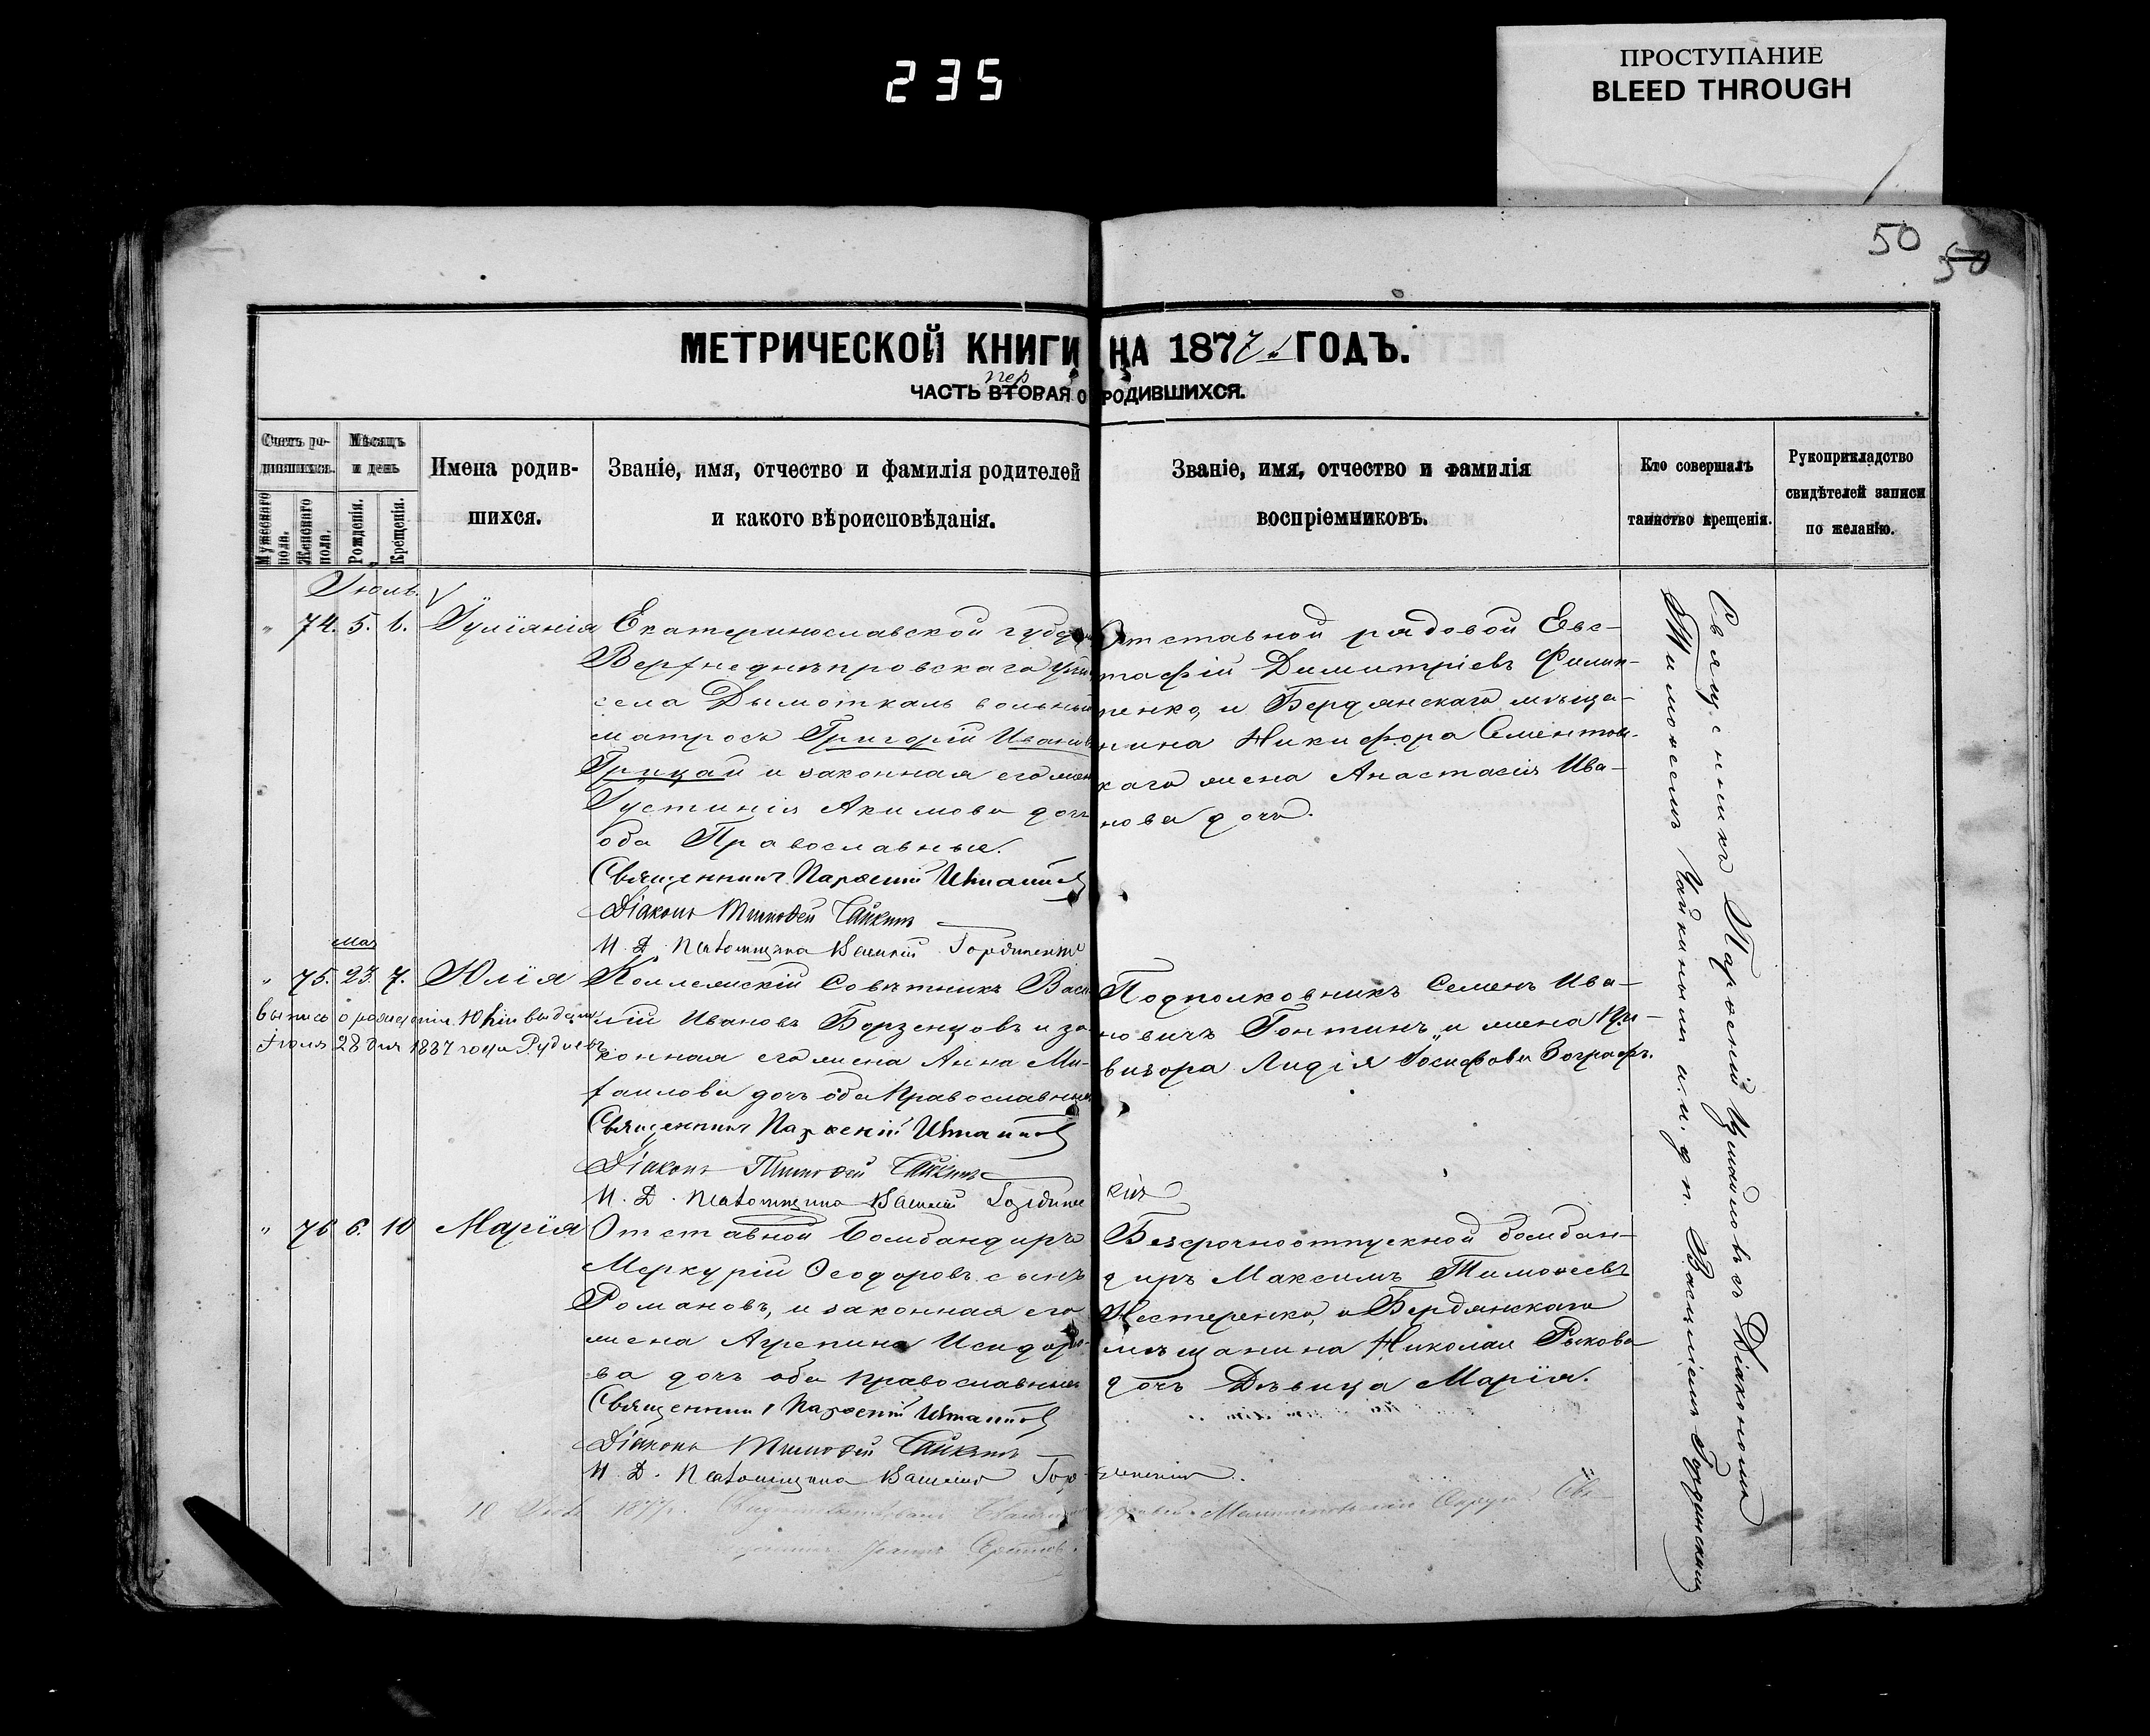 235
ПРОСТУПАНИЕ
BLEED THROUGH
50
50
МЕТРИЧЕСКОЙ КНИГИ НА 1877 ГОДЪ.
пер
ЧАСТЬ ВТОРАЯ О РОДИВШИХСЯ.
Счетъ родившихся.
Мужескаго пола.
Женскаго пола.
Мѣсяцъ и день
Рожденія.
Крещенія.
Имена родив-
шихся.
Званіе, имя, отчество и фамилія родителей
и какого вѣроисповѣданія.
Званіе, имя, отчество и фамилія
воспріемниковъ.
Кто совершалъ
таинство крещенія.
Рукоприкладство
свидѣтелей записи
по желанію.
Іюль.
" 74. 5. 6. Іуліанія
Екатеринославской губерн
Верхнеднѣпровскаго уѣзд
села Дымоткань вольный
матросъ Григорій Ивановъ
Грицай и законная его жен
Іустинія Акимова дочь
оба Православные.
Священникъ Парѳеній
Діаконъ Тимоѳей Чайкинъ
И. Д. Псаломщика Василій Гординскій
Отставной рядовой Евс-
тафій Димитріевъ Филип-
пенко, и Бердянскаго мѣща-
нина Никифора Сементов-
каго жена Анастасія Ива-
нова дочь.
мая
" 75. 23. 7. Юлія
выпись о рожденіи Юліи выдана
Іюля 28 дня 1887 года
Коллежскій Совѣтникъ Васи
лій Ивановъ Борзенцовъ и за
конная его жена Анна Ми-
хаилова дочь оба Православные
Священникъ Парѳеній
Діаконъ Тимоѳей Чайкинъ
И. Д. Псаломщика Василій Гординс
кій
Подполковникъ Семенъ Ива-
новичъ Гонтинъ, и жена
визора Лидія Іосифова Зографъ.
" 76 6. 10 Марія
Отставной Бомбандиръ
Меркурій Ѳеодоровъ сынъ
Романовъ, и законная его
жена Агрепина Исидоро-
ва дочь оба православные
Священникъ Парѳеній
Діаконъ Тимоѳей Чайкинъ
И. Д. Псаломщика Василій Гор-
динскій.
Безсрочноотпускной бомбан-
диръ Максимъ Тимоѳеевъ
Нестеренко, и Бердянскаго
мѣщанина Николая Рыкова
дочь Дѣвица Марія.
Священникъ Парѳеній Діакономъ
Тимоѳеемъ Чайкинымъ и. и. д. п. Василіемъ Гординскимъ
1877г.